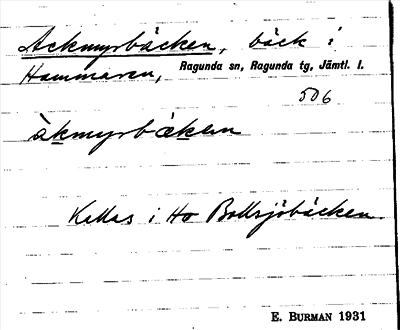 Ackmyrbäcken, bäck i
Hammaren, Ragunda sn, Ragunda tg, Jämtl. l.
506
àkmyrbäcken
Kallas i Ho Bollsjöbäcken.
E. BURMAN 1931